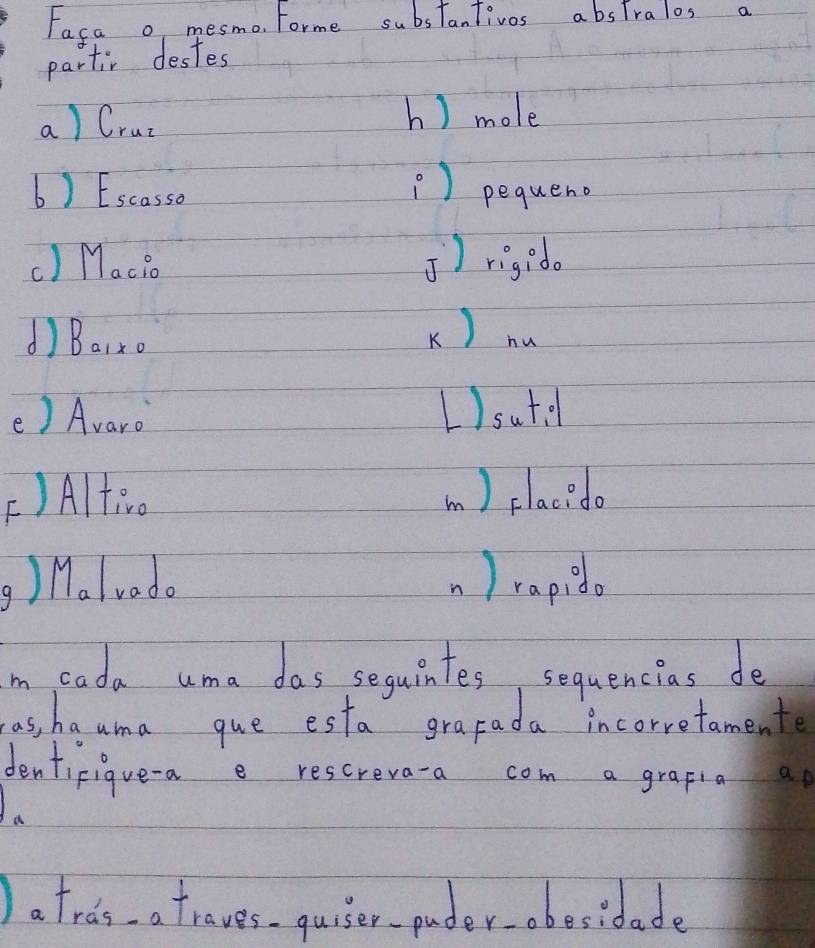 Faça o mesmo. Forme substantivos abstratos a
partir destes
a) Cruz
h) mole
b) Escasso
i) pequeno
c) Macio
J) rigido
d) Baixo
K) nu
e) Avaro
L) sutil
F) Altivo
m) Flacido
g) Malvado
n) rapido
m cada uma das seguintes sequencias de
ras, ha uma que esta grafada incorretamente
dentifique-a e rescreva-a com a grafia ap
da
) atrás - atraves - quiser - puder - obesidade